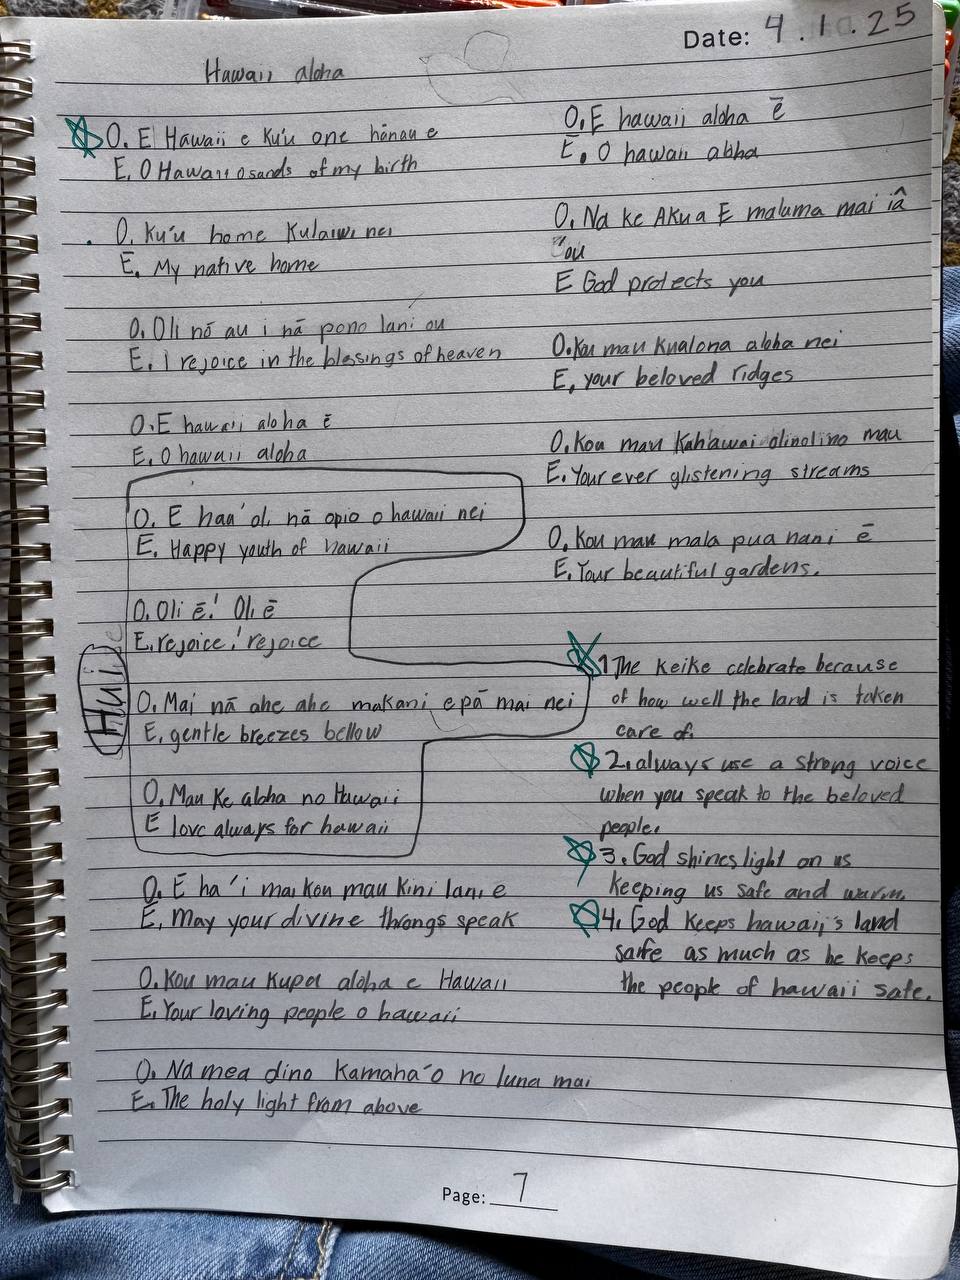 Date: 4.1.25
Hawaii aloha
O. E Hawaii e Ku'u one hānau e
E. O Hawaii o sands of my birth
O. Ku'u home Kulaiwi nei
E. My native home
O. Oli nō au i nā pono lani ou
E. I rejoice in the blessings of heaven
O. E hawaii aloha ē
E. O hawaii aloha
O. E hau'oli nā opio o hawaii nei
E. Happy youth of hawaii
O. Oli ē! Oli ē
E. rejoice! rejoice
Hui
O. Mai nā ahe ahe makani e pā mai nei
E. gentle breezes bellow
O. Mau Ke aloha no Hawaii
E love always for hawaii
O. E ha'i mai kou mau kini lani e
E. May your divine throngs speak
O. Kou mau Kupa aloha e Hawaii
E. Your loving people o hawaii
O. Na mea dino Kamaha'o no luna mai
E. The holy light from above
O. E hawaii aloha ē
E. O hawaii aloha
O. Na ke Akua E maluma mai iâ
'ou
E God protects you
O. Kou mau Kualona aloha nei
E. your beloved ridges
O. Kou mau Kahawai olinolino mau
E. Your ever glistening streams
O. Kou mau mala pua nani ē
E. Your beautiful gardens.
1 The keike celebrate because
of how well the land is taken
care of.
2. always use a strong voice
when you speak to the beloved
people.
3. God shines light on us
keeping us safe and warm.
4. God keeps hawaii's land
safe as much as he keeps
the people of hawaii safe.
Page: 7